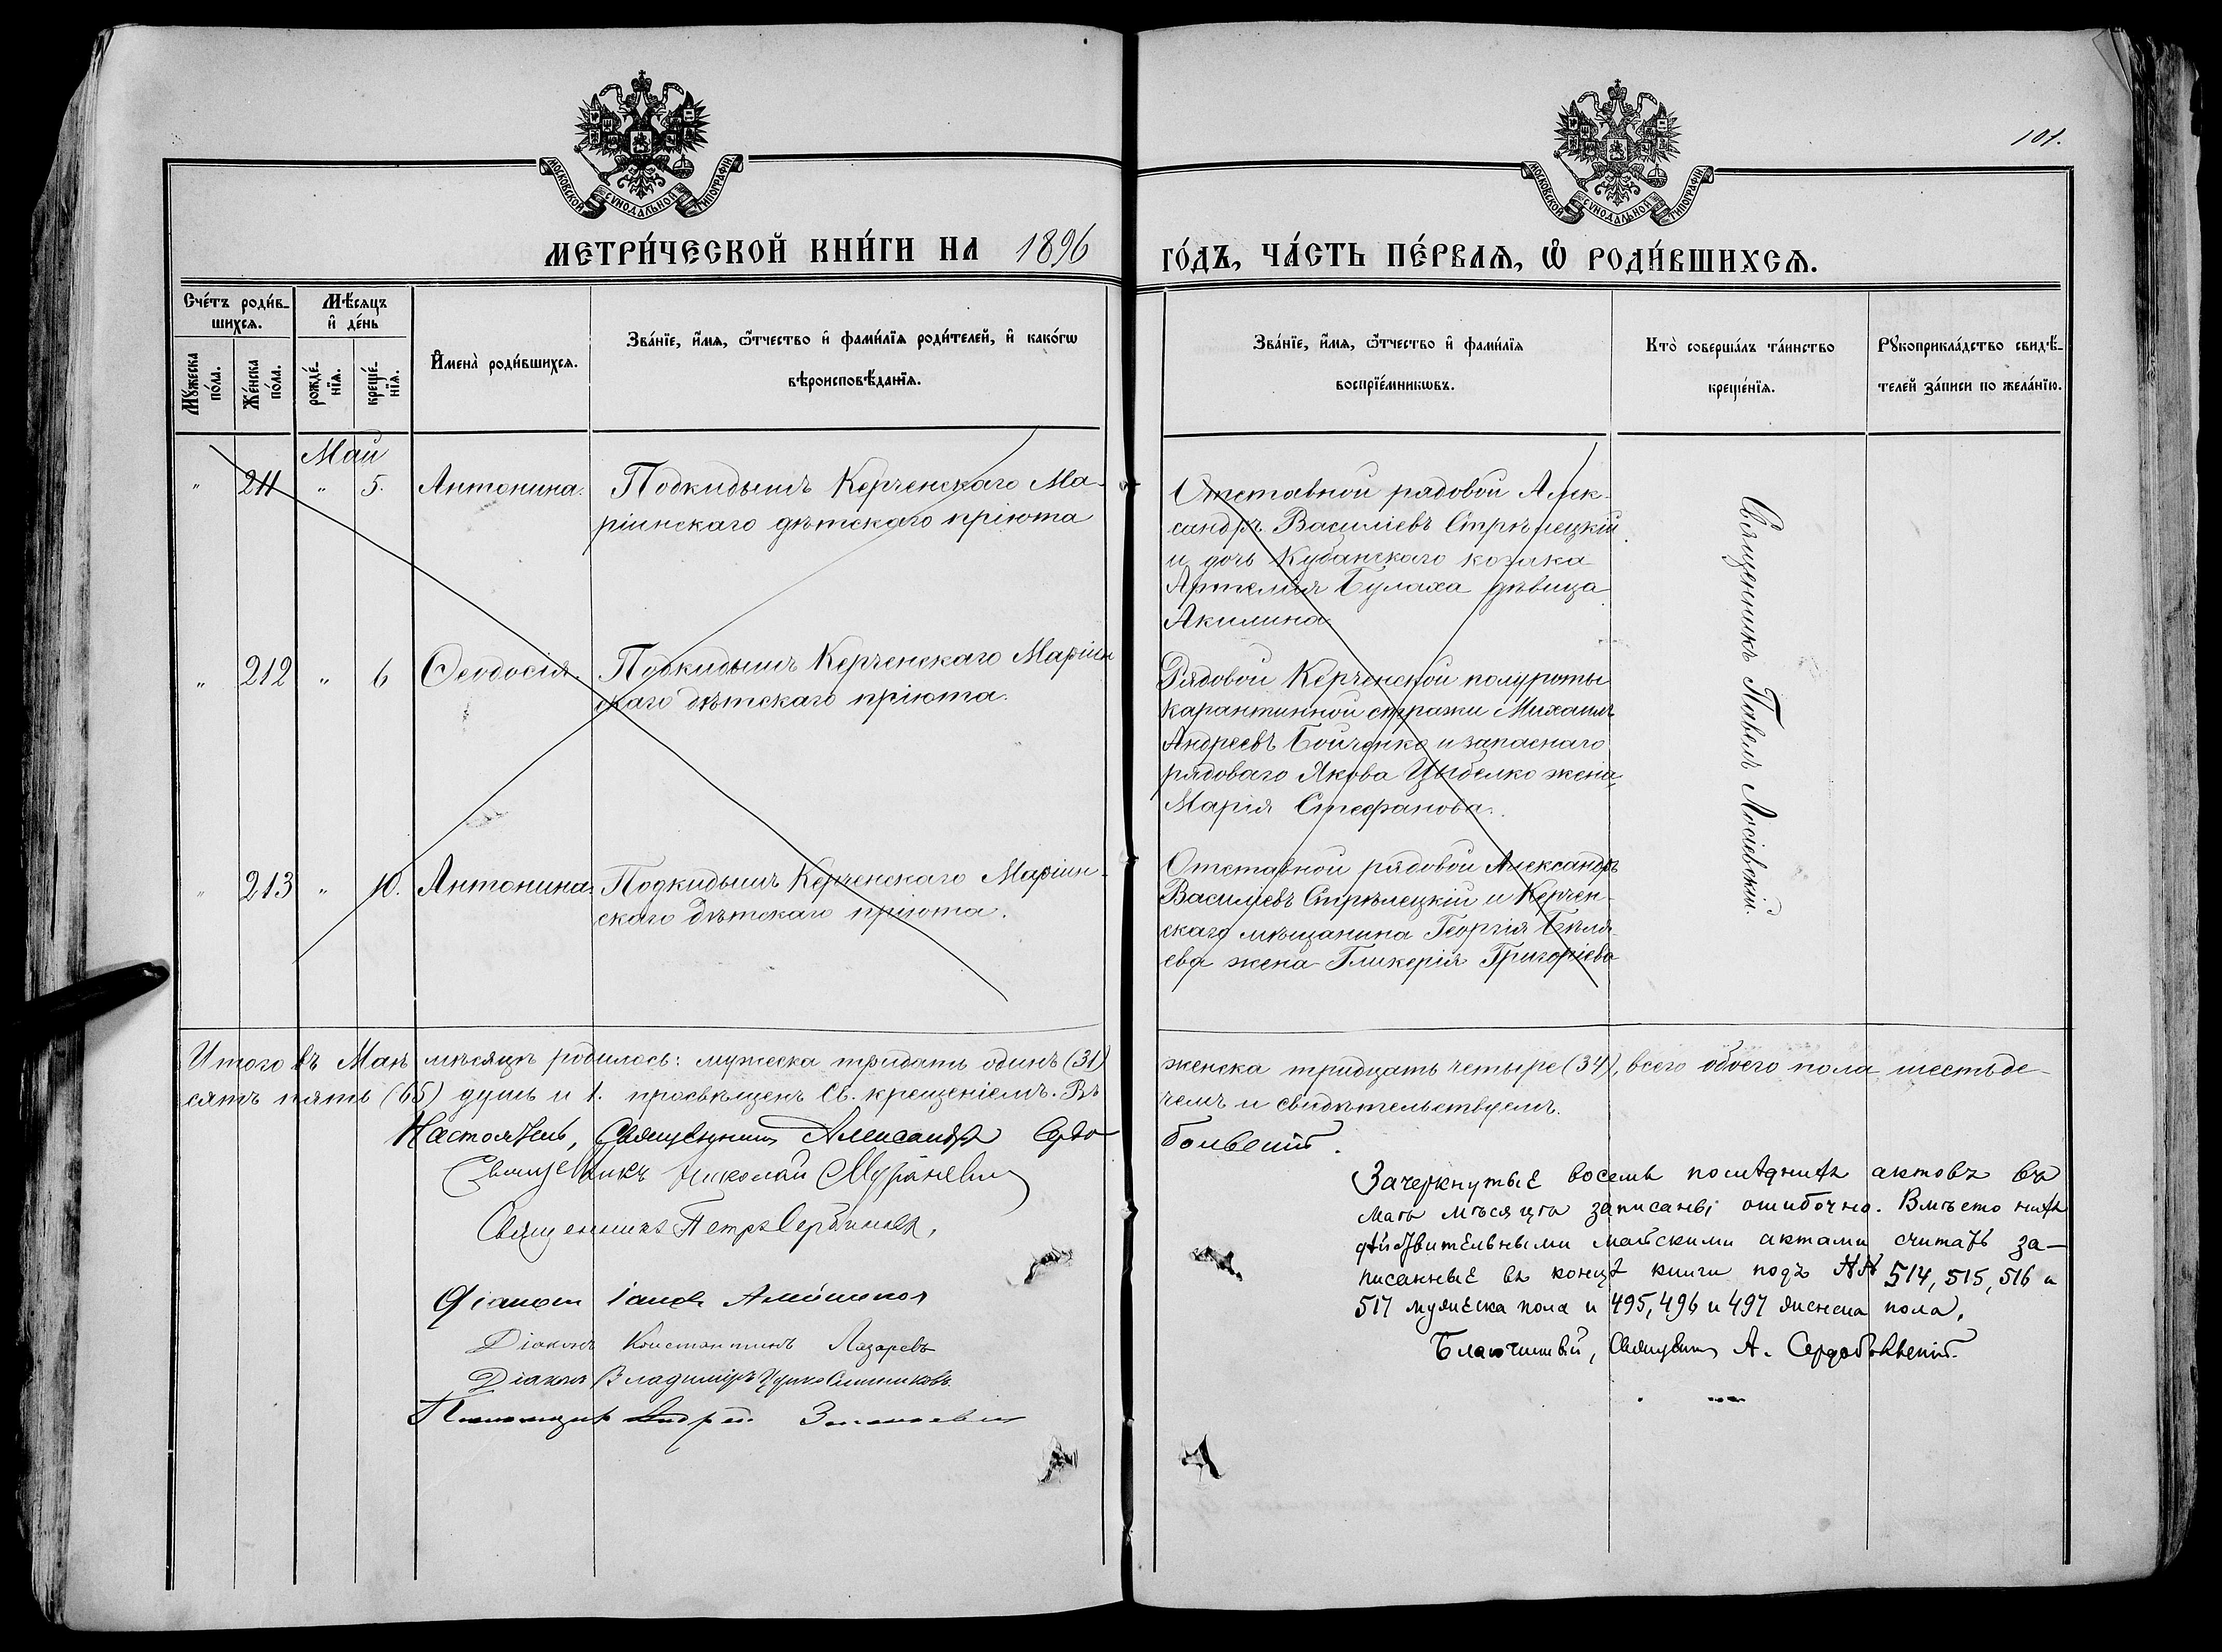 101.
МОСКОВСКОЙ СУНОДАЛЬНОЙ ТИПОГРАФІИ
МОСКОВСКОЙ СУНОДАЛЬНОЙ ТИПОГРАФІИ
МЕТРИ́ЧЕСКОЙ КНИ́ГИ НА 1896
ГО́ДЪ, ЧА́СТЬ ПЕ́РВАѦ, Ѽ РОДИ́ВШИХСѦ.
Сче́тъ роди́в-
шихсѧ.
Мꙋ́жеска
по́ла.
Же́нска
по́ла.
Мѣ́сяцъ
и҆ де́нь
рожде́-
нїѧ.
креще́-
нїѧ.
И҆мена̀ роди́вшихсѧ.
Зва́нїе, и҆́мѧ, ѻ҆́тчество и҆ фами́лїѧ роди́телей, и҆ како́гѡ
вѣроисповѣ́данїѧ.
Зва́нїе, и҆́мѧ, ѻ҆́тчество и҆ фами́лїѧ
воспрїе́мникѡвъ.
Кто̀ соверша́лъ та́инство
креще́нїѧ.
Рꙋкоприкла́дство свидѣ́-
телей за́писи по жела́нїю.
Май
" 211 " 5. Антонина. Подкидышъ Керченскаго Ма-
ріинскаго дѣтскаго пріюта
Отставной рядовой Алек-
сандръ Василіевъ Стрѣлецкій
и дочь Кубанскаго козака
Артемія Булаха дѣвица
Акилина
" 212 " 6 Ѳеодосія. Подкидышъ Керченскаго Маріин
скаго дѣтскаго пріюта.
Рядовой Керченской полуроты
карантинной стражи Михаилъ
Андреевъ Бойченко и запаснаго
рядоваго Якова Цыбелко жена
Марія Стефанова.
" 213 " 10. Антонина Подкидышъ Керченскаго Маріин-
скаго дѣтскаго пріюта.
Отставной рядовой Александръ
Василіевъ Стрѣлецкій и Керчен-
скаго мѣщанина Георгія Бѣля-
ева жена Гликерія Григоріева
Священникъ Павелъ Лосіевскій.
Итого въ Маѣ мѣсяцѣ родилось: мужеска тридцать одинъ (31)
женска тридцать четыре (34), всего обоего пола шестьде-
сятъ пять (65) душъ и 1. просвѣщенъ Св. крещеніемъ. Въ
чемъ и свидѣтельствуемъ.
Настоятель, Священникъ Александръ Сердо-
больскій.
Священникъ Николай
Священникъ Петръ Сербиновъ,
Діаконъ
Діаконъ Константинъ Лазаревъ
Діаконъ Владиміръ
Псаломщикъ Андрей
Зачеркнутые восемь послѣднихъ актовъ въ
маѣ мѣсяцѣ записаны ошибочно. Вмѣсто нихъ
дѣйствительными майскими актами считать за-
писанные въ концѣ книги подъ №№ 514, 515, 516 и
517 мужеска пола и 495, 496 и 497 женска пола.
Благочинный, Священникъ А. Сердобольскій.